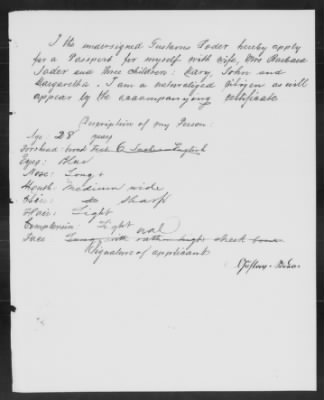 I the undersigned Gustavus Fader hereby apply
for a Passport for myself with wife, Mrs Barbara
Fader and three children: Mary, John and
Margaretha. I am a naturalized Citizen as will
appear by the accompanying certificate
Description of my Person:
Age: 28 years
Forehead: broad Feet 6 Inches English
Eyes: Blue
Nose: Long
Mouth: Medium wide
Chin: Sharp
Hair: Light
Complexion: Light
Face oval Long with rather high cheek bones
Signature of applicant